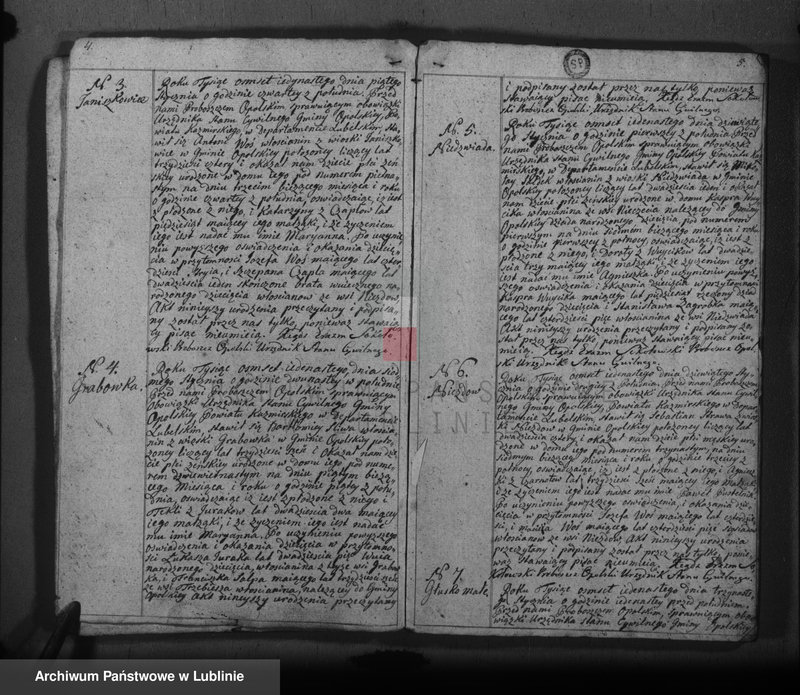 4.
No. 3.
Janiszkowice
Roku Tysiąc ośmset iedynastego dnia piątego
Stycznia o godzinie czwartey z południa. Przed
nami Proboszczem Opolskim sprawuiącym obowiązki
Urzędnika Stanu Cywilnego Gminy Opolskiey Po-
wiatu Kazmirskiego, w Departamencie Lubelskim, sta-
wił się Antoni Woś włościanin z wioski Janiszko-
wice w Gminie Opolskiey położoney liczący lat
trzydzieści cztery i okazał nam dziecie płci żeń-
skiey urodzone w domu iego pod numerem
dnia trzecim bieżącego miesiąca i roku
o godzinie czwartey z południa, oświadczaiąc, iż iest
z płodzone z niego, i Katarzyny z Czaplow lat
maiącey iego małżąki, i że życzeniem
iego iest nadać mu imie Maryanna. Po uczynie-
niu powyższego oświadczenia i okazania dziecię-
cia w przytomności Jozefa Woś maiącego lat czter-
dzieści Stryia, i Szczepana Czapla maiącego lat
dwadzieścia ieden skończone brata wuiecznego na-
rodzonego dziecięcia włościanow ze wsi Niezdow.
Akt ninieyszy urodzenia przeczytany i podpisa-
ny został przez nas tylko, ponieważ stawaią-
cy pisać nieumieią. Xiądz Erazm Sokoło-
wski Proboszcz Opolski Urzędnik Stanu Cywilnego.
No. 4.
Grabowka.
Roku Tysiąc ośmset iedenastego, dnia siod-
mego Stycznia o godzinie dwunastey w południe
Przed nami Proboszczem Opolskim sprawuiącym
Obowiązki Urzędnika Stanu Cywilnego Gminy
Opolskiey Powiatu Kazmirskiego w Departamencie
Lubelskim, stawił się Bartłomiey włościa-
nin z wioski Grabowka w Gminie Opolskiey poło-
żoney liczący lat trzydzieści sześć i Okazał nam dzie-
cie płci żeńskiey urodzone w domu iego pod nume-
rem dziewietnastym na dniu piątym bieżą-
cego Miesiąca i roku o godzinie piątey z połu-
dnia, oświadczaiąc iż iest zpłodzone z niego i
Tekli z Jurakow lat dwadzieścia dwa maiącey
iego małżąki, i że życzeniem iego iest nadać
mu imie Maryanna. Po uczynieniu powyższego
oświadczenia i okazania dziecięcia w przytomno-
ści Łukasza Juraka lat dwadzieścia pięć Wuia
narodzonego dziecięcia, włościanina z teyże wsi Grabow-
ka, i maiącego lat trzydzieści
ze wsi Trzebiesza włościanina, należącey do Gminy
Opolskiey Akt ninieyszy urodzenia przeczytany
5.
i podpisany został przez nas tylko ponieważ
stawaiący pisać nieumieią. Xiądz Erazm Sokołow-
ski Proboszcz Opolski Urzędnik Stanu Cywilnego.
No. 5.
Niedzwiada.
Roku Tysiąc ośmset iedenastego dnia dziewiąte-
go Stycznia o godzinie pierwszey z południa Przed
nami Proboszczem Opolskim sprawuiącym obowiązki
Urzędnika Stanu Cywilnego Gminy Opolskiey Powiatu Kaz-
mirskiego, w Departamencie Lubelskim, stawił się
włościanin z wioski Niedzwiada w Gminie
Opolskiey położoney liczący lat dwadzieścia ieden i okazał
nam dziecie płci żeńskiey urodzone w domu Kaspra Wuy-
cika włościanina ze wsi należącey do Gminy
Opolskiey Dziada narodzonego dziecięcia, pod numerem
pierwszym na dniu siodmym bieżącego miesiąca i roku
o godzinie pierwszey z północy, oświadczaiąc, iż iest z
płodzone z niego, i Doroty z Wuycikow lat dwadzie-
ścia trzy maiącey iego małżąki, i że życzeniem iego
iest nadać mu imie Agnieszka. Po uczynieniu powyż-
szego oświadczenia i okazania dziecięcia w przytomności
Kaspra Wuycika maiącego lat pięćdziesiąt rzeczony dziad
narodzonego dziecięcia i Stanisława Zagrobka maią-
cego lat czterdzieści pięć włościanina ze wsi Niedzwiada
Akt ninieyszy urodzenia przeczytany i podpisany zo-
stał przez nas tylko, ponieważ stawaiący pisać nieu-
mieią. Xiądz Erazm Sokołowski Proboszcz Opol-
ski Urzędnik Stanu Cywilnego.
No. 6.
Niezdow
Roku Tysiąc ośmset iedenastego, dnia dziewiątego Sty-
cznia o godzinie drugiey z Południa. Przed nami Proboszczem
Opolskim sprawuiącym obowiązki Urzędnika Stanu Cywil-
nego Gminy Opolskiey, Powiatu Kazmirskiego w Depar-
tamencie Lubelskim, stawił się Sebastian
Niezdow w Gminie Opolskiey położoney liczący lat
dwadzieścia cztery i okazał nam dziecie płci męskiey uro-
dzone w domu iego pod numerem trzynastym na dniu
siodmym bieżącego Miesiąca i roku o godzinie trzeciey z
północy, oświadczaiąc, iż iest z płodzone z niego, i
z Czarnotow lat trzydzieści sześć maiącey iego Małżąki
i że życzeniem iego iest nadać mu imie Paweł
Po uczynieniu powyższego oświadczenia i okazania dzie-
cięcia, w przytomności Jozefa Wosia maiącego lat czterdzie-
ści, i Woś maiącego lat czterdzieści pięć
włościanow ze wsi Niezdow. Akt ninieyszy urodzenia
przeczytany i podpisany został przez nas tylko ponie-
waż stawaiący pisać nieumieią. Xiądz Erazm So-
kołowski Proboszcz Opolski Urzędnik Stanu Cywilnego.
No. 7.
Głusko małe.
Roku Tysiąc ośmset iedenastego, dnia trzynaste-
go Stycznia o godzinie iedenastey przed południem.
Przed nami Proboszczem Opolskim, sprawuiącym obo-
wiązki Urzędnika Stanu Cywilnego Gminy Opolskiey
Archiwum Państwowe w Lublinie